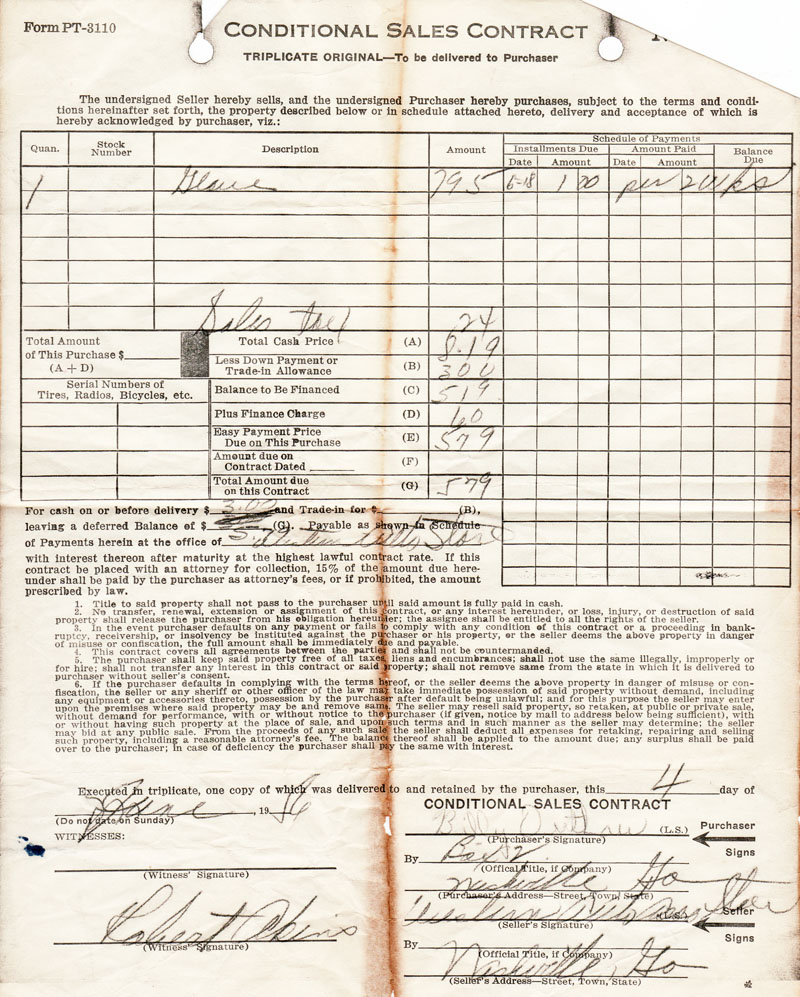 Form PT-3110
CONDITIONAL SALES CONTRACT
TRIPLICATE ORIGINAL—To be delivered to Purchaser
The undersigned Seller hereby sells, and the undersigned Purchaser hereby purchases, subject to the terms and condi-
tions hereinafter set forth, the property described below or in schedule attached hereto, delivery and acceptance of which is
hereby acknowledged by purchaser, viz.:
Quan. Stock Number Description Amount Schedule of Payments
Installments Due Amount Paid Balance Due
Date Amount Date Amount
1 Glove 795 6-18 1 00 per 2 wks
Sales Tax 24
Total Amount of This Purchase $ (A + D)
Total Cash Price (A) 8.19
Less Down Payment or Trade-in Allowance (B) 300
Serial Numbers of Tires, Radios, Bicycles, etc.
Balance to Be Financed (C) 519
Plus Finance Charge (D) 60
Easy Payment Price Due on This Purchase (E) 579
Amount due on Contract Dated (F)
Total Amount due on this Contract (G) 579
For cash on or before delivery $ 3.00 and Trade-in for $ (B),
leaving a deferred Balance of $ (G). Payable as shown in Schedule
of Payments herein at the office of Western Auto Store
with interest thereon after maturity at the highest lawful contract rate. If this
contract be placed with an attorney for collection, 15% of the amount due here-
under shall be paid by the purchaser as attorney's fees, or if prohibited, the amount
prescribed by law.
1. Title to said property shall not pass to the purchaser until said amount is fully paid in cash.
2. No transfer, renewal, extension or assignment of this contract, or any interest hereunder, or loss, injury, or destruction of said
property shall release the purchaser from his obligation hereunder; the assignee shall be entitled to all the rights of the seller.
3. In the event purchaser defaults on any payment or fails to comply with any condition of this contract or a proceeding in bank-
ruptcy, receivership, or insolvency be instituted against the purchaser or his property, or the seller deems the above property in danger
of misuse or confiscation, the full amount shall be immediately due and payable.
4. This contract covers all agreements between the parties and shall not be countermanded.
5. The purchaser shall keep said property free of all taxes, liens and encumbrances; shall not use the same illegally, improperly or
for hire; shall not transfer any interest in this contract or said property; shall not remove same from the state in which it is delivered to
purchaser without seller's consent.
6. If the purchaser defaults in complying with the terms hereof, or the seller deems the above property in danger of misuse or con-
fiscation, the seller or any sheriff or other officer of the law may take immediate possession of said property without demand, including
any equipment or accessories thereto, possession by the purchaser after default being unlawful; and for this purpose the seller may enter
upon the premises where said property may be and remove same. The seller may resell said property, so retaken, at public or private sale,
without demand for performance, with or without notice to the purchaser (if given, notice by mail to address below being sufficient), with
or without having such property at the place of sale, and upon such terms and in such manner as the seller may determine; the seller
may bid at any public sale. From the proceeds of any such sale the seller shall deduct all expenses for retaking, repairing and selling
such property, including a reasonable attorney's fee. The balance thereof shall be applied to the amount due; any surplus shall be paid
over to the purchaser; in case of deficiency the purchaser shall pay the same with interest.
Executed in triplicate, one copy of which was delivered to and retained by the purchaser, this 4 day of
June, 1956
(Do not date on Sunday)
CONDITIONAL SALES CONTRACT
WITNESSES:
Bill Outlaw (L.S.) Purchaser Signs
(Purchaser's Signature)
By Box 2
(Witness' Signature)
(Offical Title, if Company)
Nashville Ga
(Purchaser's Address—Street, Town, State)
Western Auto Ass. Store Seller Signs
(Seller's Signature)
Robert Akins
(Witness' Signature)
By
(Official Title, if Company)
Nashville, Ga
(Seller's Address—Street, Town, State)